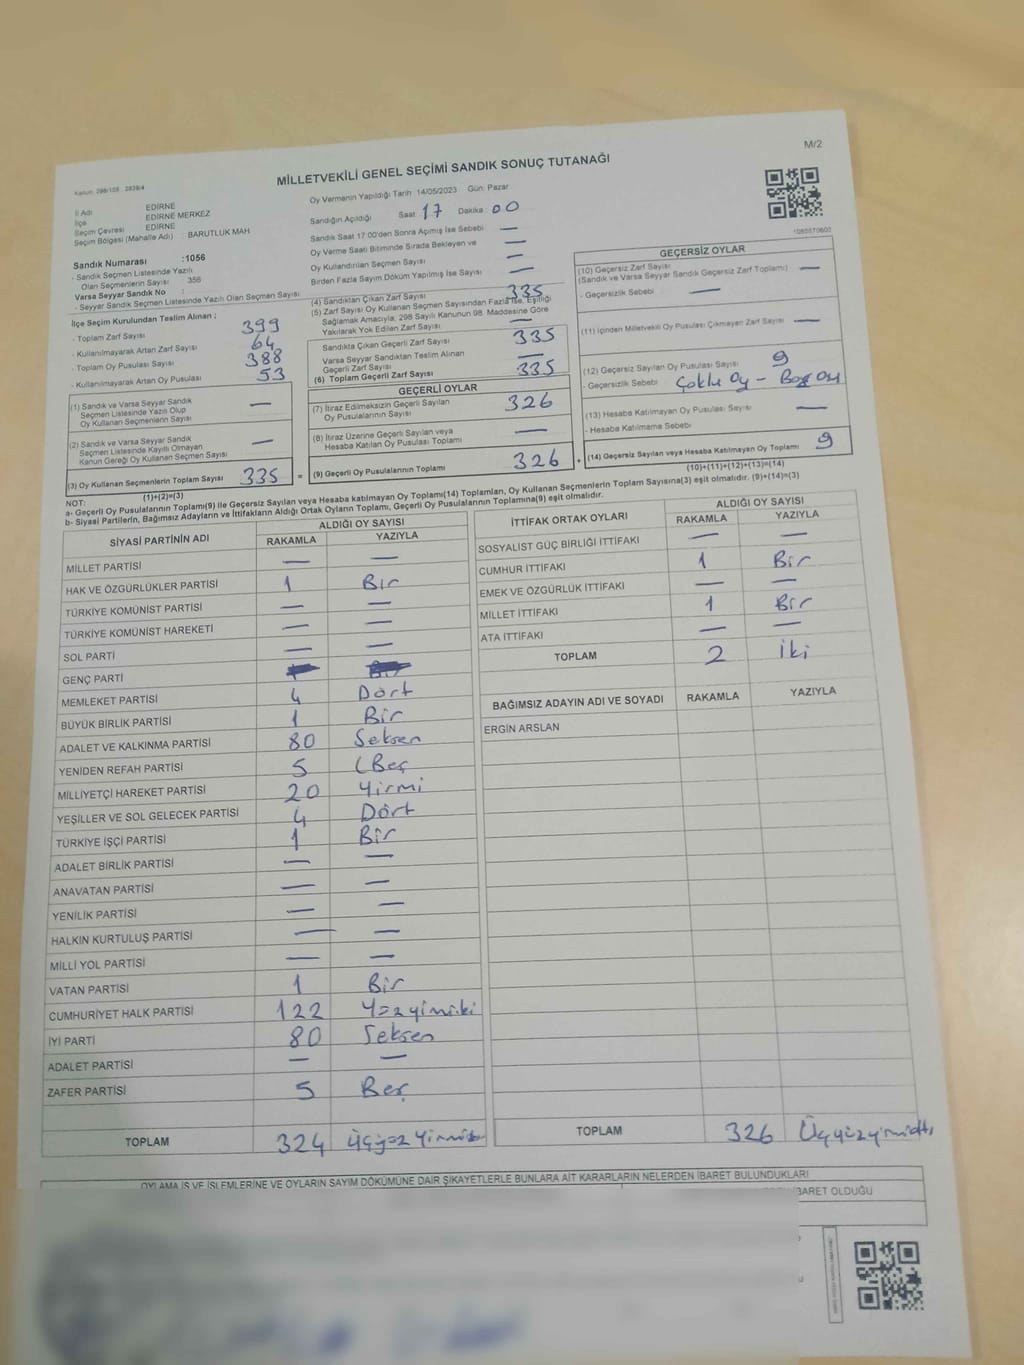 M/2
MİLLETVEKİLİ GENEL SEÇİMİ SANDIK SONUÇ TUTANAĞI
Kanun: 298/105 2839/4
İl Adı EDİRNE
İlçe EDİRNE MERKEZ
Seçim Çevresi EDİRNE
Seçim Bölgesi (Mahalle Adı) BARUTLUK MAH
Oy Vermenin Yapıldığı Tarih : 14/05/2023 Gün: Pazar
Sandığın Açıldığı Saat : 17 Dakika : 00
Sandık Saat 17:00'den Sonra Açımış İse Sebebi : —
Oy Verme Saati Bitiminde Sırada Bekleyen ve —
Oy Kullandırılan Seçmen Sayısı —
Birden Fazla Sayım Döküm Yapılmış İse Sayısı —
Sandık Numarası :1056
- Sandık Seçmen Listesinde Yazılı
Olan Seçmenlerin Sayısı : 356
Varsa Seyyar Sandık No :
- Seyyar Sandık Seçmen Listesinde Yazılı Olan Seçmen Sayısı :
İlçe Seçim Kurulundan Teslim Alınan ;
- Toplam Zarf Sayısı 399
- Kullanılmayarak Artan Zarf Sayısı 64
- Toplam Oy Pusulası Sayısı 388
- Kullanılmayarak Artan Oy Pusulası 53
(1) Sandık ve Varsa Seyyar Sandık
Seçmen Listesinde Yazılı Olup
Oy Kullanan Seçmenlerin Sayısı —
(2) Sandık ve Varsa Seyyar Sandık
Seçmen Listesinde Kayıtlı Olmayan
Kanun Gereği Oy Kullanan Seçmen Sayısı —
(3) Oy Kullanan Seçmenlerin Toplam Sayısı 335 =
(1)+(2)=(3)
(4) Sandıktan Çıkan Zarf Sayısı 335
(5) Zarf Sayısı Oy Kullanan Seçmen Sayısından Fazla ise, Eşitliği
Sağlamak Amacıyla, 298 Sayılı Kanunun 98. Maddesine Göre
Yakılarak Yok Edilen Zarf Sayısı —
Sandıkta Çıkan Geçerli Zarf Sayısı 335
Varsa Seyyar Sandıktan Teslim Alınan
Geçerli Zarf Sayısı —
(6) Toplam Geçerli Zarf Sayısı 335
GEÇERLİ OYLAR
(7) İtiraz Edilmeksizin Geçerli Sayılan
Oy Pusulalarının Sayısı 326
(8) İtiraz Üzerine Geçerli Sayılan veya
Hesaba Katılan Oy Pusulası Toplamı —
(9) Geçerli Oy Pusulalarının Toplamı 326 +
1080570603
GEÇERSİZ OYLAR
(10) Geçersiz Zarf Sayısı
(Sandık ve Varsa Seyyar Sandık Geçersiz Zarf Toplamı) —
- Geçersizlik Sebebi : —
(11) İçinden Milletvekili Oy Pusulası Çıkmayan Zarf Sayısı —
(12) Geçersiz Sayılan Oy Pusulası Sayısı 9
- Geçersizlik Sebebi : Çoklu Oy - Boş Oy
(13) Hesaba Katılmayan Oy Pusulası Sayısı —
- Hesaba Katılmama Sebebi
(14) Geçersiz Sayılan veya Hesaba Katılmayan Oy Toplamı 9
(10)+(11)+(12)+(13)=(14)
NOT:
a- Geçerli Oy Pusulalarının Toplamı(9) ile Geçersiz Sayılan veya Hesaba katılmayan Oy Toplamı(14) Toplamları, Oy Kullanan Seçmenlerin Toplam Sayısına(3) eşit olmalıdır. (9)+(14)=(3)
b- Siyasi Partilerin, Bağımsız Adayların ve İttifakların Aldığı Ortak Oyların Toplamı, Geçerli Oy Pusulalarının Toplamına(9) eşit olmalıdır.
SİYASİ PARTİNİN ADI ALDIĞI OY SAYISI
RAKAMLA YAZIYLA
MİLLET PARTİSİ — —
HAK VE ÖZGÜRLÜKLER PARTİSİ 1 Bir
TÜRKİYE KOMÜNİST PARTİSİ — —
TÜRKİYE KOMÜNİST HAREKETİ — —
SOL PARTİ — —
GENÇ PARTİ
MEMLEKET PARTİSİ 4 Dört
BÜYÜK BİRLİK PARTİSİ 1 Bir
ADALET VE KALKINMA PARTİSİ 80 Seksen
YENİDEN REFAH PARTİSİ 5 (Beş
MİLLİYETÇİ HAREKET PARTİSİ 20 Yirmi
YEŞİLLER VE SOL GELECEK PARTİSİ 4 Dört
TÜRKİYE İŞÇİ PARTİSİ 1 Bir
ADALET BİRLİK PARTİSİ — —
ANAVATAN PARTİSİ — —
YENİLİK PARTİSİ — —
HALKIN KURTULUŞ PARTİSİ — —
MİLLİ YOL PARTİSİ — —
VATAN PARTİSİ 1 Bir
CUMHURİYET HALK PARTİSİ 122 Yüzyirmiiki
İYİ PARTİ 80 Seksen
ADALET PARTİSİ — —
ZAFER PARTİSİ 5 Beş
TOPLAM 324
İTTİFAK ORTAK OYLARI ALDIĞI OY SAYISI
RAKAMLA YAZIYLA
SOSYALİST GÜÇ BİRLİĞİ İTTİFAKI — —
CUMHUR İTTİFAKI 1 Bir
EMEK VE ÖZGÜRLÜK İTTİFAKI — —
MİLLET İTTİFAKI 1 Bir
ATA İTTİFAKI — —
TOPLAM 2 İki
BAĞIMSIZ ADAYIN ADI VE SOYADI RAKAMLA YAZIYLA
ERGİN ARSLAN
TOPLAM 326 Üçyüzyirmialtı
OYLAMA İŞ VE İŞLEMLERİNE VE OYLARIN SAYIM DÖKÜMÜNE DAİR ŞİKAYETLERLE BUNLARA AİT KARARLARIN NELERDEN İBARET BULUNDUKLARI
BARET OLDUĞU